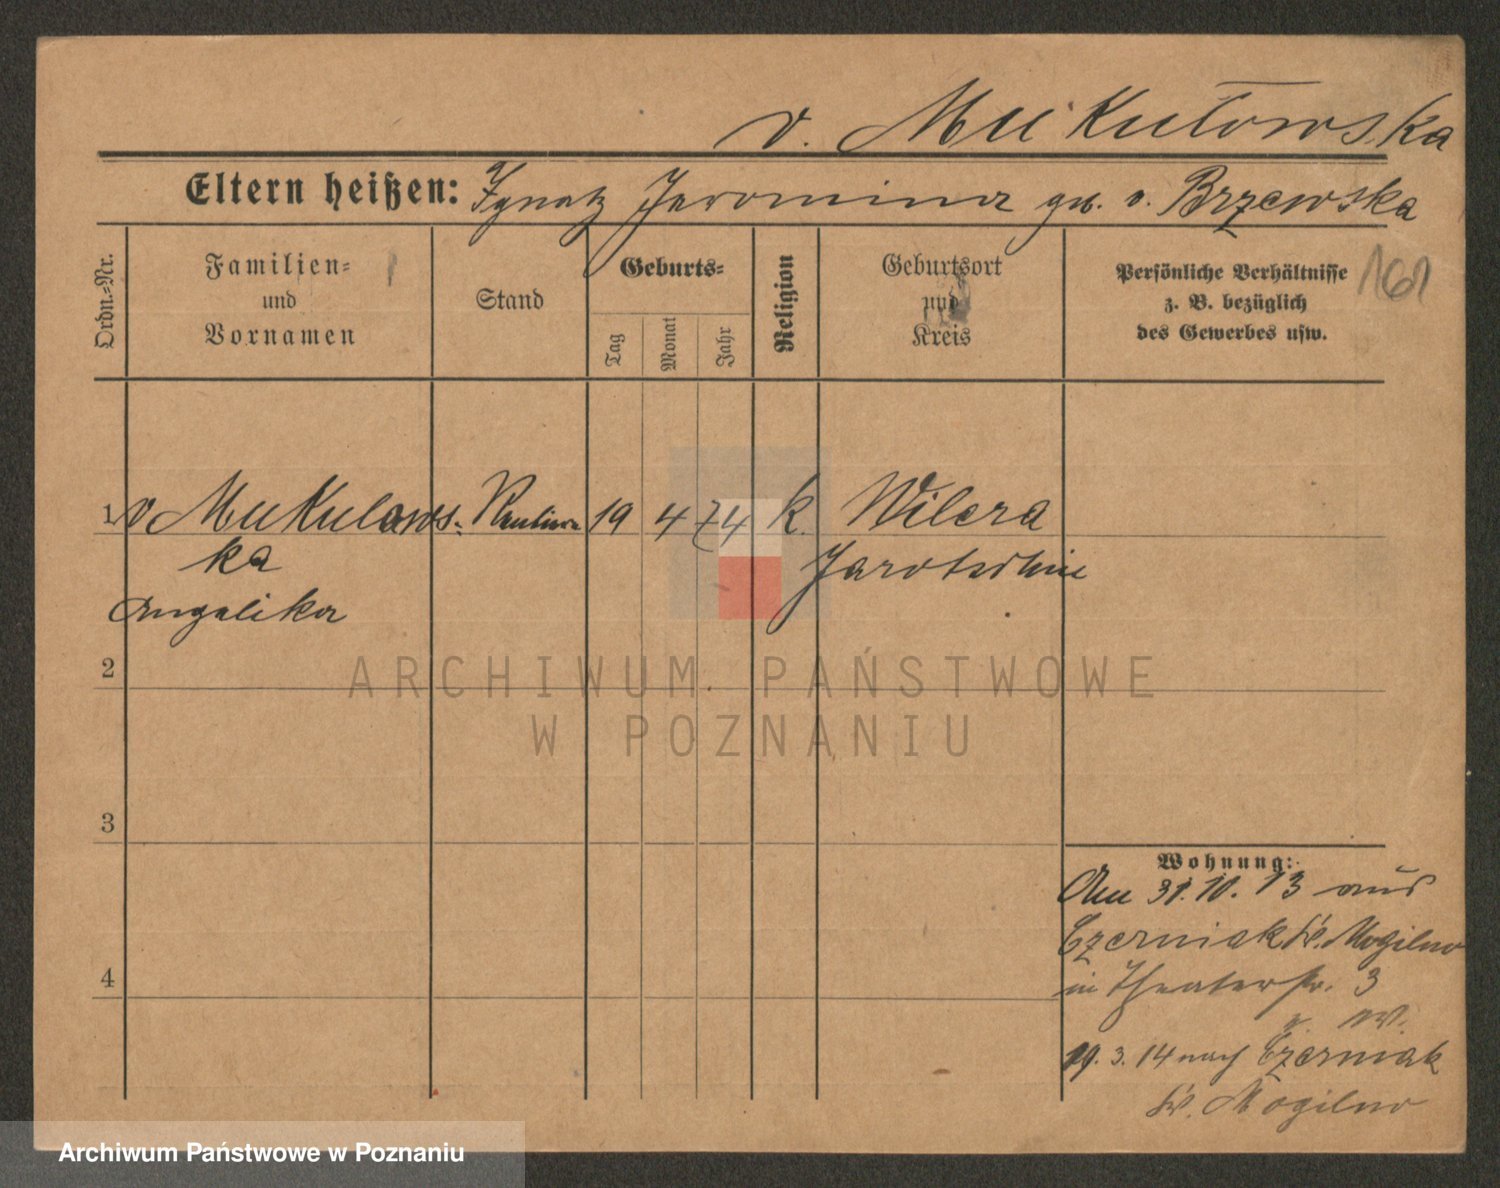 v. Mukułowska
Eltern heißen: Ignatz Jeromina geb. v. Brzewska
Ordn.-Nr.
Familien-
und
Vornamen
Stand
Geburts-
Tag
Monat
Jahr
Religion
Geburtsort
und
Kreis
Persönliche Verhältnisse
z. B. bezüglich
des Gewerbes usw.
161
1 v Mukulaws- 19 4 74 k. Wilcza
ka Jarotschin
Angelika
2
ARCHIWUM PAŃSTWOWE
W POZNANIU
3
Wohnung:
Am 31.10.13 aus
Czerniak Kr. Mogilno
in Theaterstr. 3
4
v. W.
19.3.14 nach Czerniak
Kr. Mogilno
Archiwum Państwowe w Poznaniu